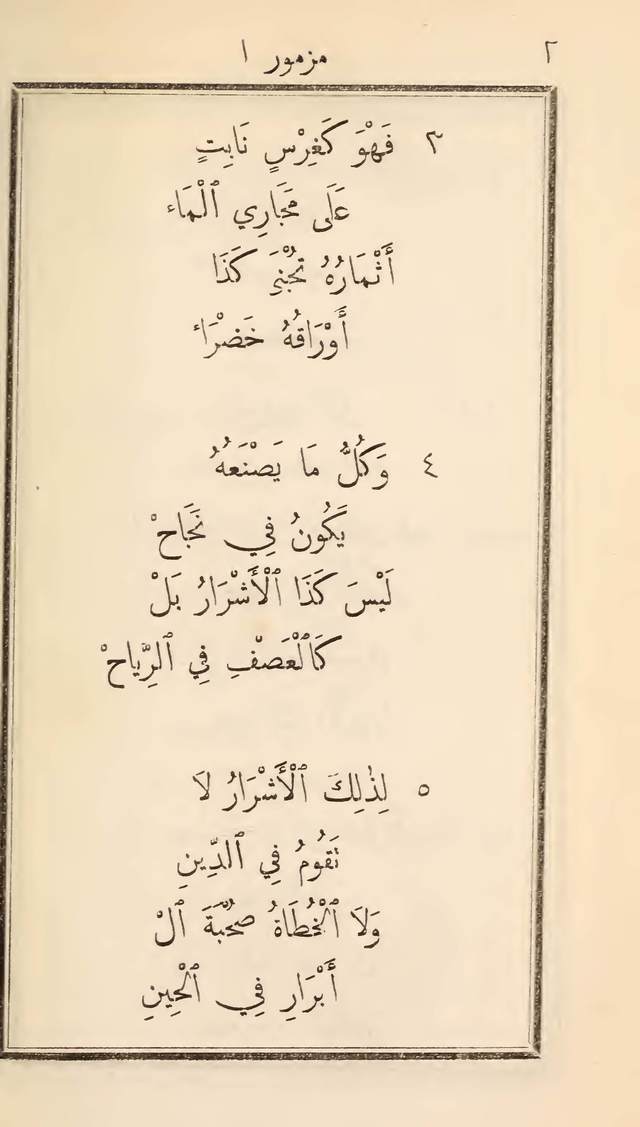 ٢ مزمور ١
٣ فَهْوَ كَغِرْسٍ نَابِتٍ
عَلَى مَجَارِي ٱلْمَاء
أَثْمَارُهُ تُجْنَى كَذَا
أَوْرَاقُهُ خَضْرَاء
٤ وَكُلُّ مَا يَصْنَعُهُ
يَكُونُ فِي نَجَاحْ
لَيْسَ كَذَا ٱلْأَشْرَارُ بَلْ
كَٱلْعَصْفِ فِي ٱلرِّيَاحْ
٥ لِذٰلِكَ ٱلْأَشْرَارُ لَا
تَقُومُ فِي ٱلدِّينِ
وَلَا ٱلْخُطَاةُ صُحْبَةَ ٱلْ
أَبْرَارِ فِي ٱلْحِينِ